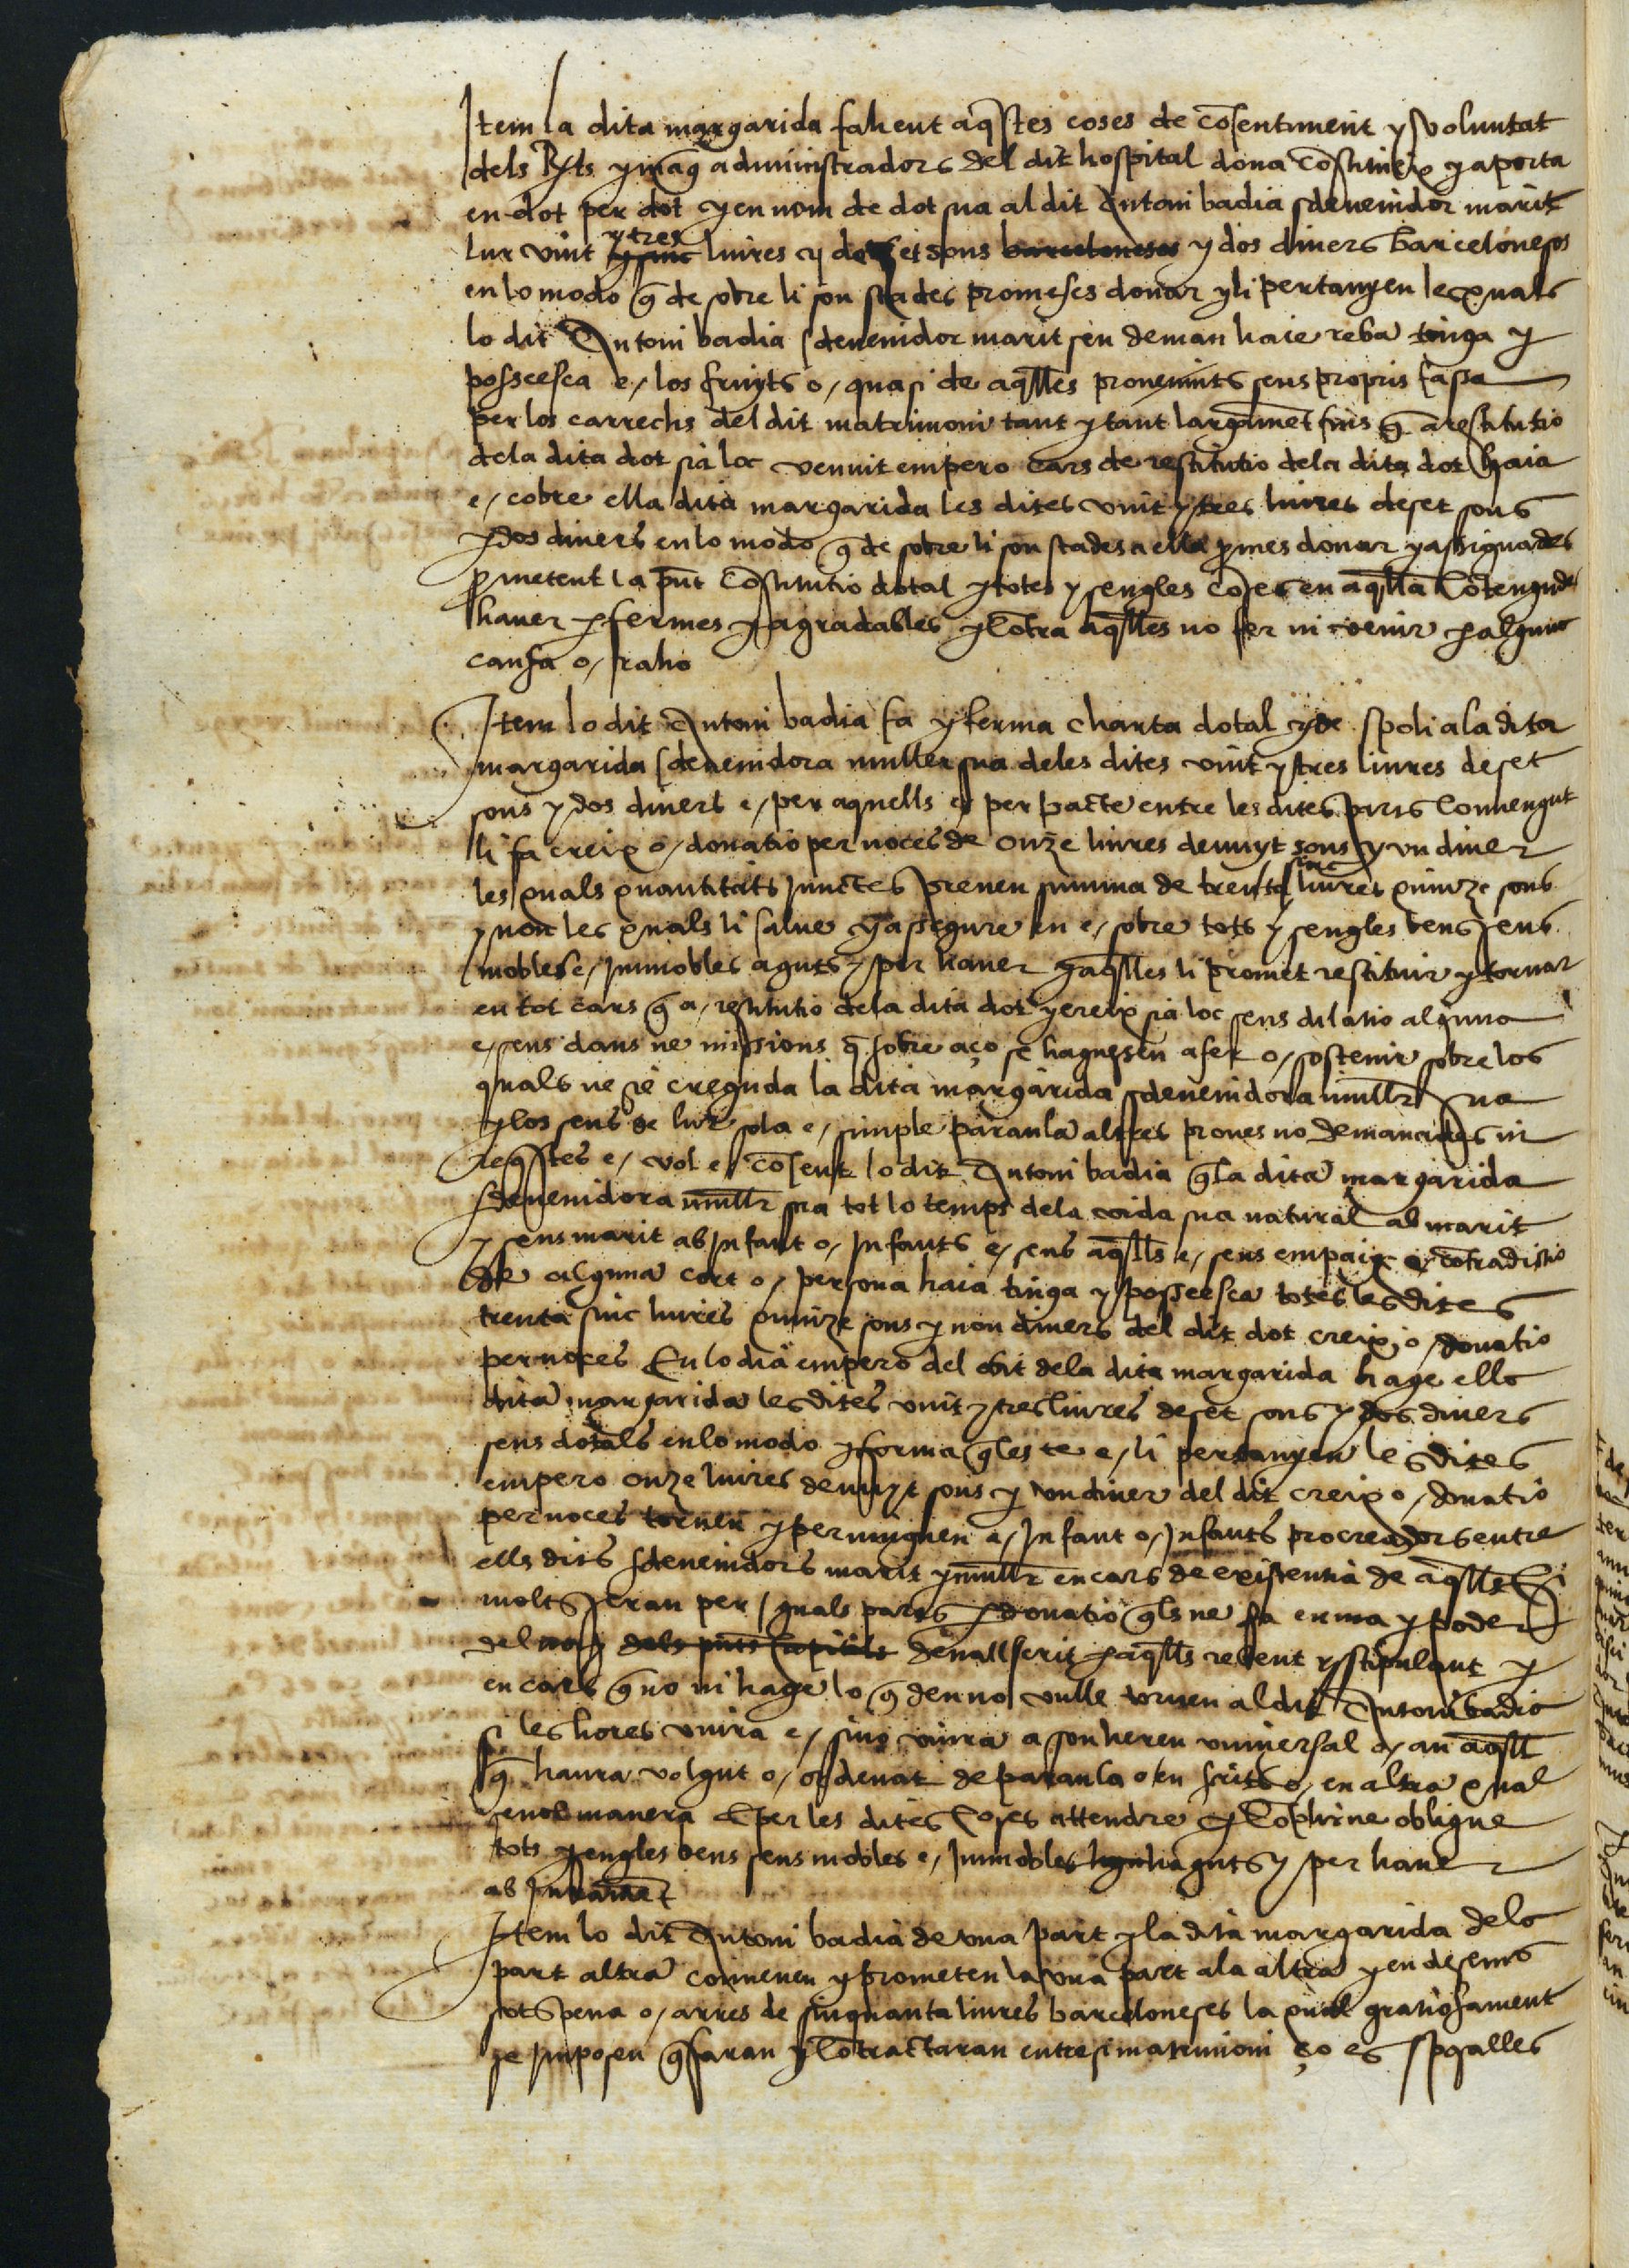 Item la dita margarida fahent aq̄stes coses de cōsentiment y voluntat
dels R̄ts y maḡ administradors del dit hospital dona cōstitueix y aporta
en dot per dot y en nom de dot sua al dit Antoni badia sdevenidor marit
lur vint y tres liures y deset sous barceloneses y dos diners barcelonesos
en lo modo q̄ de sobre li son stades promeses donar y li pertanyen les quals
lo dit Antoni badia sdevenidor marit seu deman haie reba tinga y
posseesca e / los fruyts o / quasi de aq̄lles provenints seus propris fassa
per los carrechs del dit matrimoni tant y tant largamēt fins q̄ a restitutio
dela dita dot sia loc venint empero cars de restitutio dela dita dot haia
e / cobre ella dita margarida les dites vint y tres liures deset sous
y dos diners en lo modo q̄ de sobre li son stades a ella p̄mes donar y assignades
p̄metent la pn̄t cōstitutio dotal y totes y sengles coses en aq̄lla cōtengudes
haver p fermes y agradables y cōtra aq̄lles no fer ni venir p alguna
causa o / raho
Item lo dit Antoni badia fa y ferma charta dotal y de spoli ala dita
margarida sdevenidora muller sua deles dites vint y tres liures deset
sous y dos diners e / per aquells e / per pacte entre les dites parts convengut
li fa creix o / donatio per noces de onze liures denuyt sous y un diner
les quals quantitats junctes prenen summa de trenta sinc liures quinze sous
y non les quals li salve y assegure en e / sobre tots y sengles bens seus
mobles e / immobles aguts y per haver y aq̄lles li promet restituir y tornar
en tot cars q̄ a / restitutio dela dita dot y creix sia loc sens dilatio alguna
e / sens dans ne missions q̄ sobre aço se haguesen a fer o / sostenir sobre los
quals ne sie creguda la dita margarida sdevenidora mullr̄ sua
y los seus de lur sola e / simple paraula altres proves no demanades ni
req̄stes e / vol e / cōsent lo dit Antoni badia q̄ la dita margarida
sdevenidora mullr̄ sua tot lo temps dela vida sua natural ab marit
y sens marit ab infant o / infants e / sens aq̄lls e / sens empaig e / cōtradictio
de alguna cort o / persona haia tinga y possesca totes les dites
trenta sinc liures quinze sous y non diners del dit dot creix o / donatio
per noces En lo dia empero del obit dela dita margarida hage ella
dita margarida les dites vint y tres liures deset sous y dos diners
seus dotals en lo modo y forma q̄ les te e / li pertanyen les dites
empero onze liures denuyt sous y un diner del dit creix o / donatio
per noces tornen y pervinguen a / infant o / infants procreadors entre
ells dits sdevenidors marit y mullr̄ en cars de existentia de aq̄lls Si
molts seran per iguals parts p donatio q̄ ls ne fa en ma y poder
del not dels pn̄ts capitols devall scrit p aq̄lls rebent y stipulant y
en cars q̄ no ni hage lo q̄ deu no vulle tornen al dit Antoni badia
si les hores viura e / sino viura a son hereu universal o / an aq̄ll
q̄ haura volgut o / ordenat de paraula o en scrits o / en altra qual
sevol manera E per les dites coses attendre y cōplir ne obligue
tots y sengles bens seus mobles e / immobles haguts y per haver
ab juramēt
Item lo dit Antoni badia de una part y la dita margarida dela
part altra convenen y prometen la una part ala altra y en desems
sots pena o / arres de sinquanta liures barceloneses la qual gratiosament
se imposen q̄ faran y cōtractaran entresi matrimoni ço es sposalles